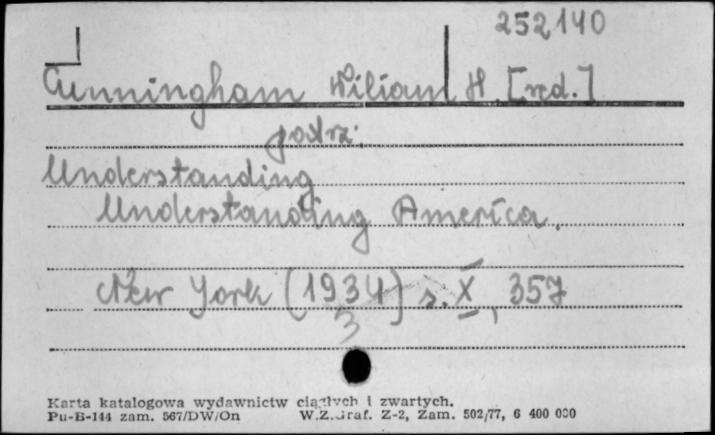 252140
Cunningham Wiliam H. [red.]
patrz:
Understanding
Understanding America.
New York (1934) s. X, 357
3
Karta katalogowa wydawnictw ciągłych i zwartych.
Pu-B-144 zam. 567/DW/On W.Z.Graf. Z-2, Zam. 502/77, 6 400 000